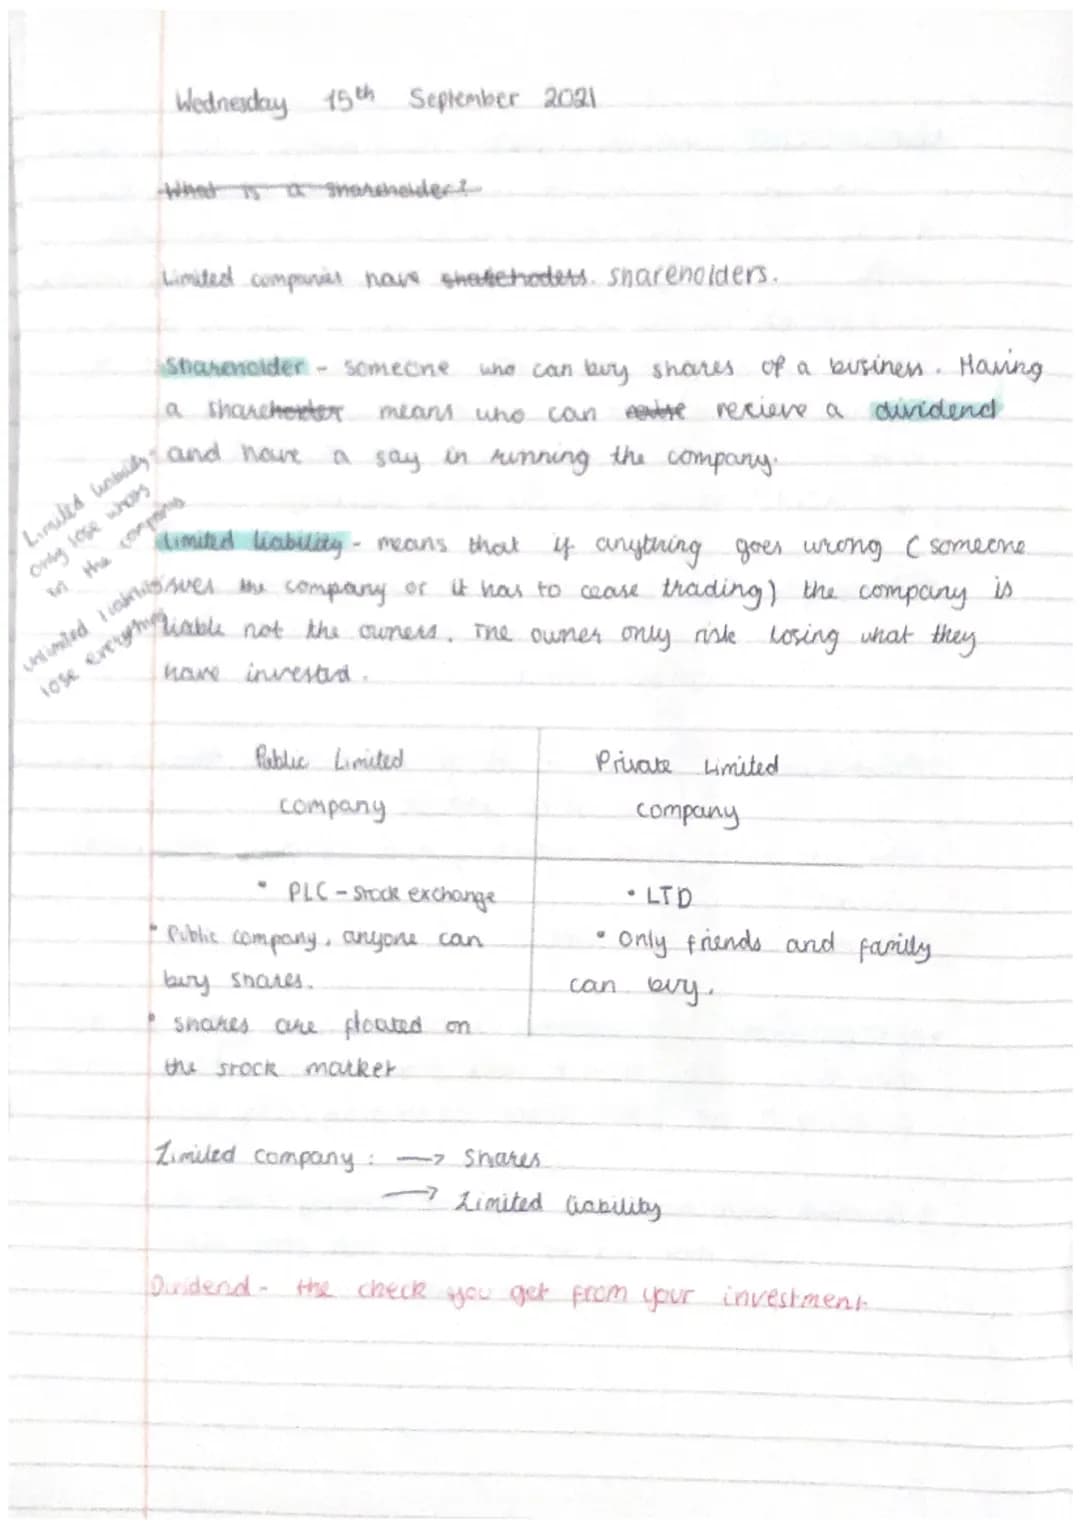 Wednesday 15th September 2021
What is a shareholder?
Limited companies have sharehoders. shareholders.
Shareholder - someone who can buy shares of a business. Having
a shareholder means who can recieve a dividend
and have a say in running the company.
Limited liability
only lose whats
in the company
unlimited liability
lose everything
Limited liability - means that if anything goes wrong (someone
sues the company or it has to cease trading) the company is
liable not the owners. The owner only risk losing what they
have invested.
Public Limited
company
Private Limited
company
• PLC - Stock exchange
• Public company, anyone can
buy shares.
• shares are floated on
the stock market
• LTD
• Only friends and family
can buy.
Limited company: → Shares
→ Limited liability
Dividend - the check you get from your investment.